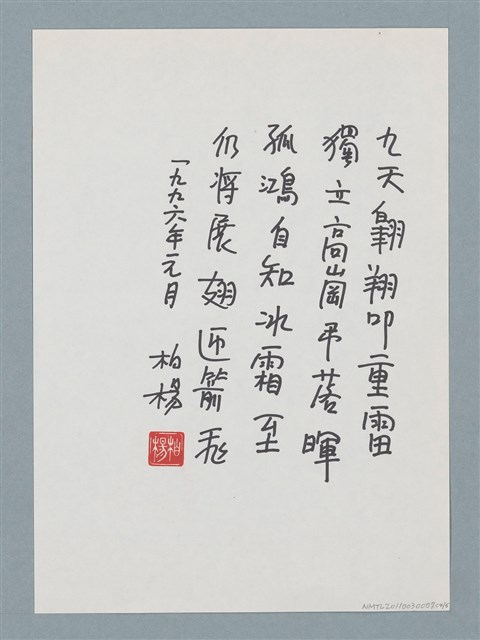 九天翺翔叩重雷
獨立高崗弔落暉
孤鴻自知冰霜至
仍將展翅迎箭飛
一九九六年元月
柏楊
柏楊